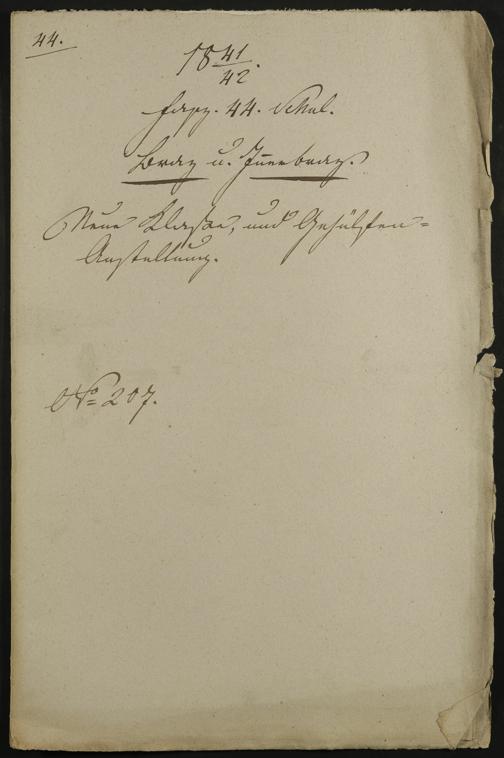 44.
18 41/42.
Fasz. 44. Schul.
Braz u. Innerbraz.
Neue Klasse, und Gehülfen=
Anstellung.
No 207.